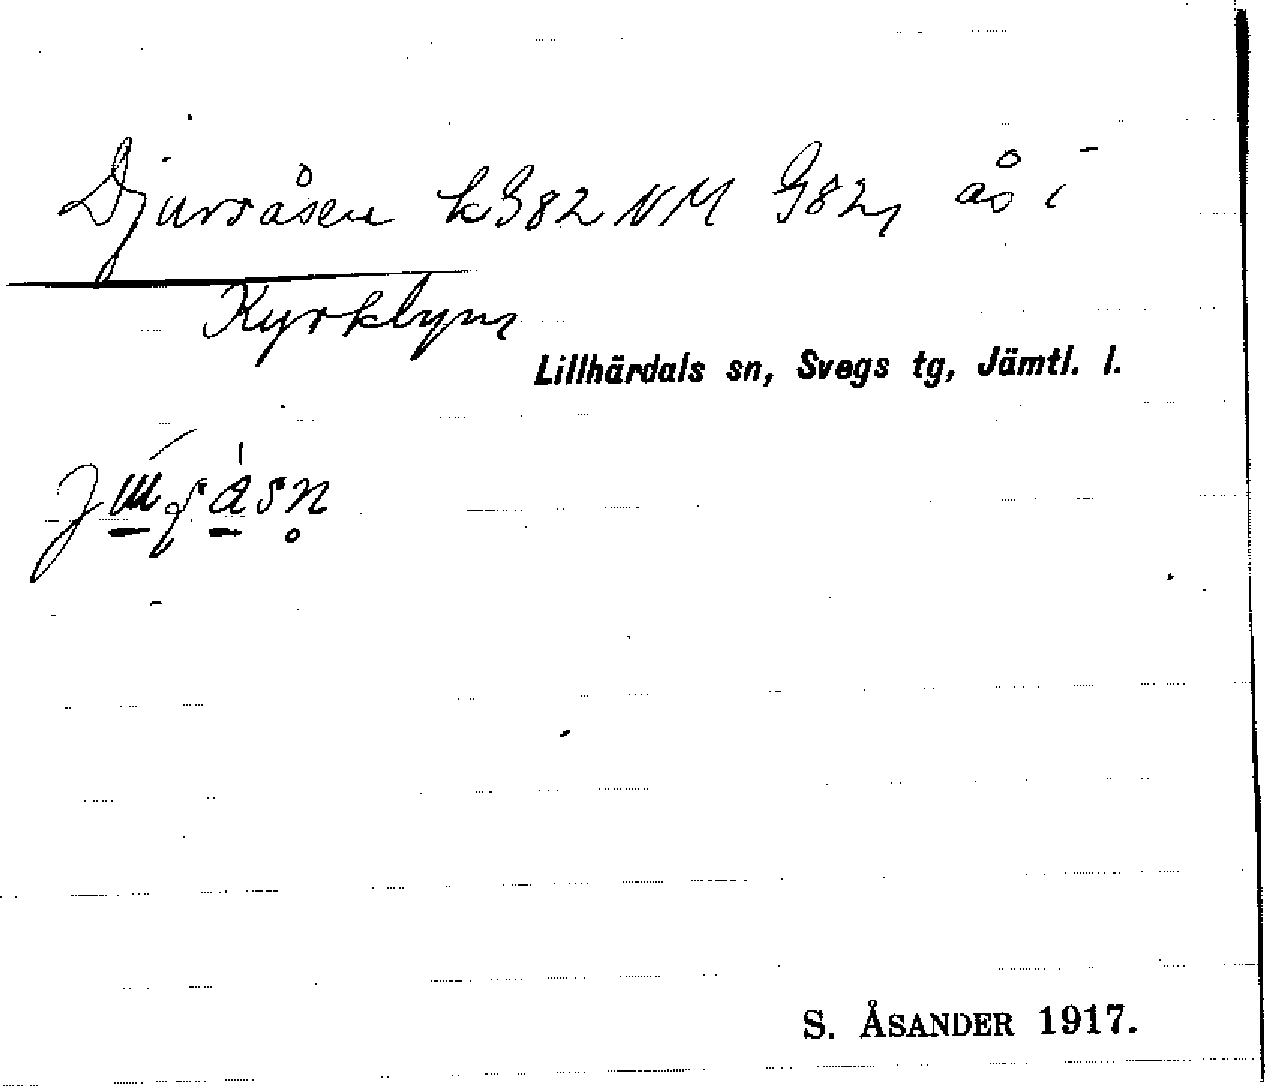 Djursåsen k G82 NM G82, ås i
Kyrkbyn,
Lillhärdals sn, Svegs tg, Jämtl. l.
S. ÅSANDER 1917.